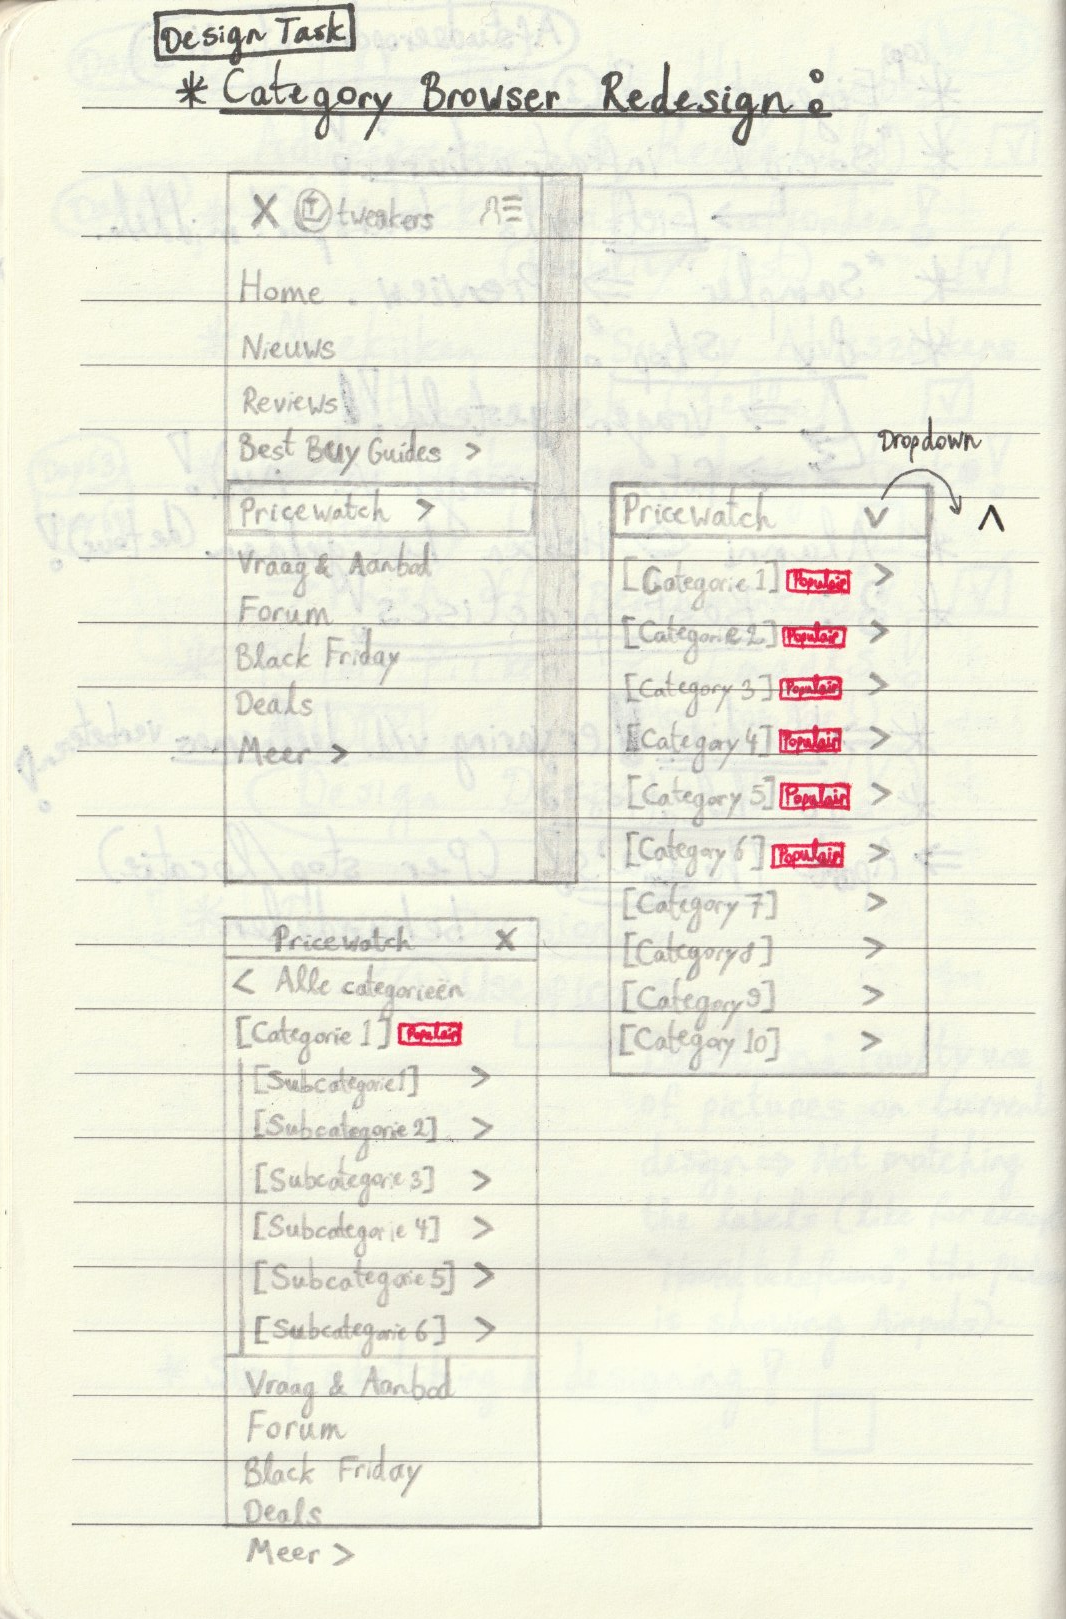 Design Task
* Category Browser Redesign:
X T tweakers
Home
Nieuws
Reviews
Best Buy Guides >
Pricewatch >
Vraag & Aanbod
Forum
Black Friday
Deals
Meer >
Dropdown
Pricewatch v ^
[Categorie 1] Populair >
[Categorie 2] Populair >
[Category 3] Populair >
[Category 4] Populair >
[Category 5] Populair >
[Category 6] Populair >
[Category 7] >
[Category 8] >
[Category 9] >
[Category 10] >
Pricewatch X
< Alle categorieën
[Categorie 1] Populair
[Subcategorie 1] >
[Subcategorie 2] >
[Subcategorie 3] >
[Subcategorie 4] >
[Subcategorie 5] >
[Subcategorie 6] >
Vraag & Aanbod
Forum
Black Friday
Deals
Meer >